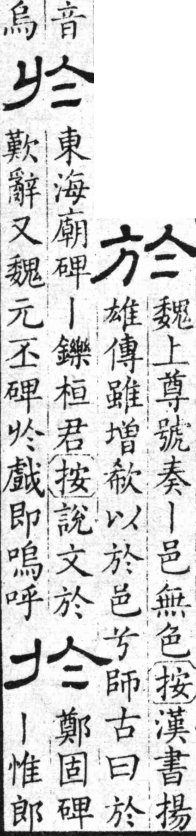 於
魏上尊號奏丨邑無色按漢書揚
雄傳雖增欷以於邑兮師古曰於
音
烏
於
東海廟碑丨鑠桓君按說文於
歎辭又魏元丕碑於戲即嗚呼
於
鄭固碑
丨惟郎